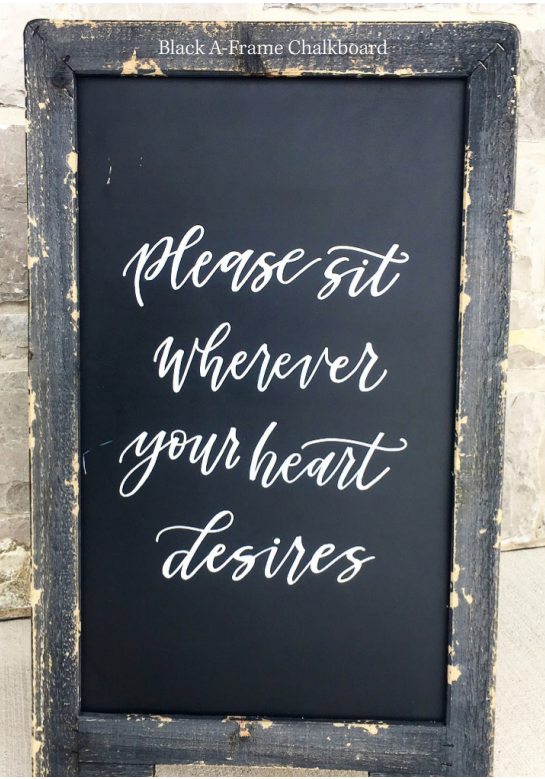 Black A-Frame Chalkboard
please sit
wherever
your heart
desires